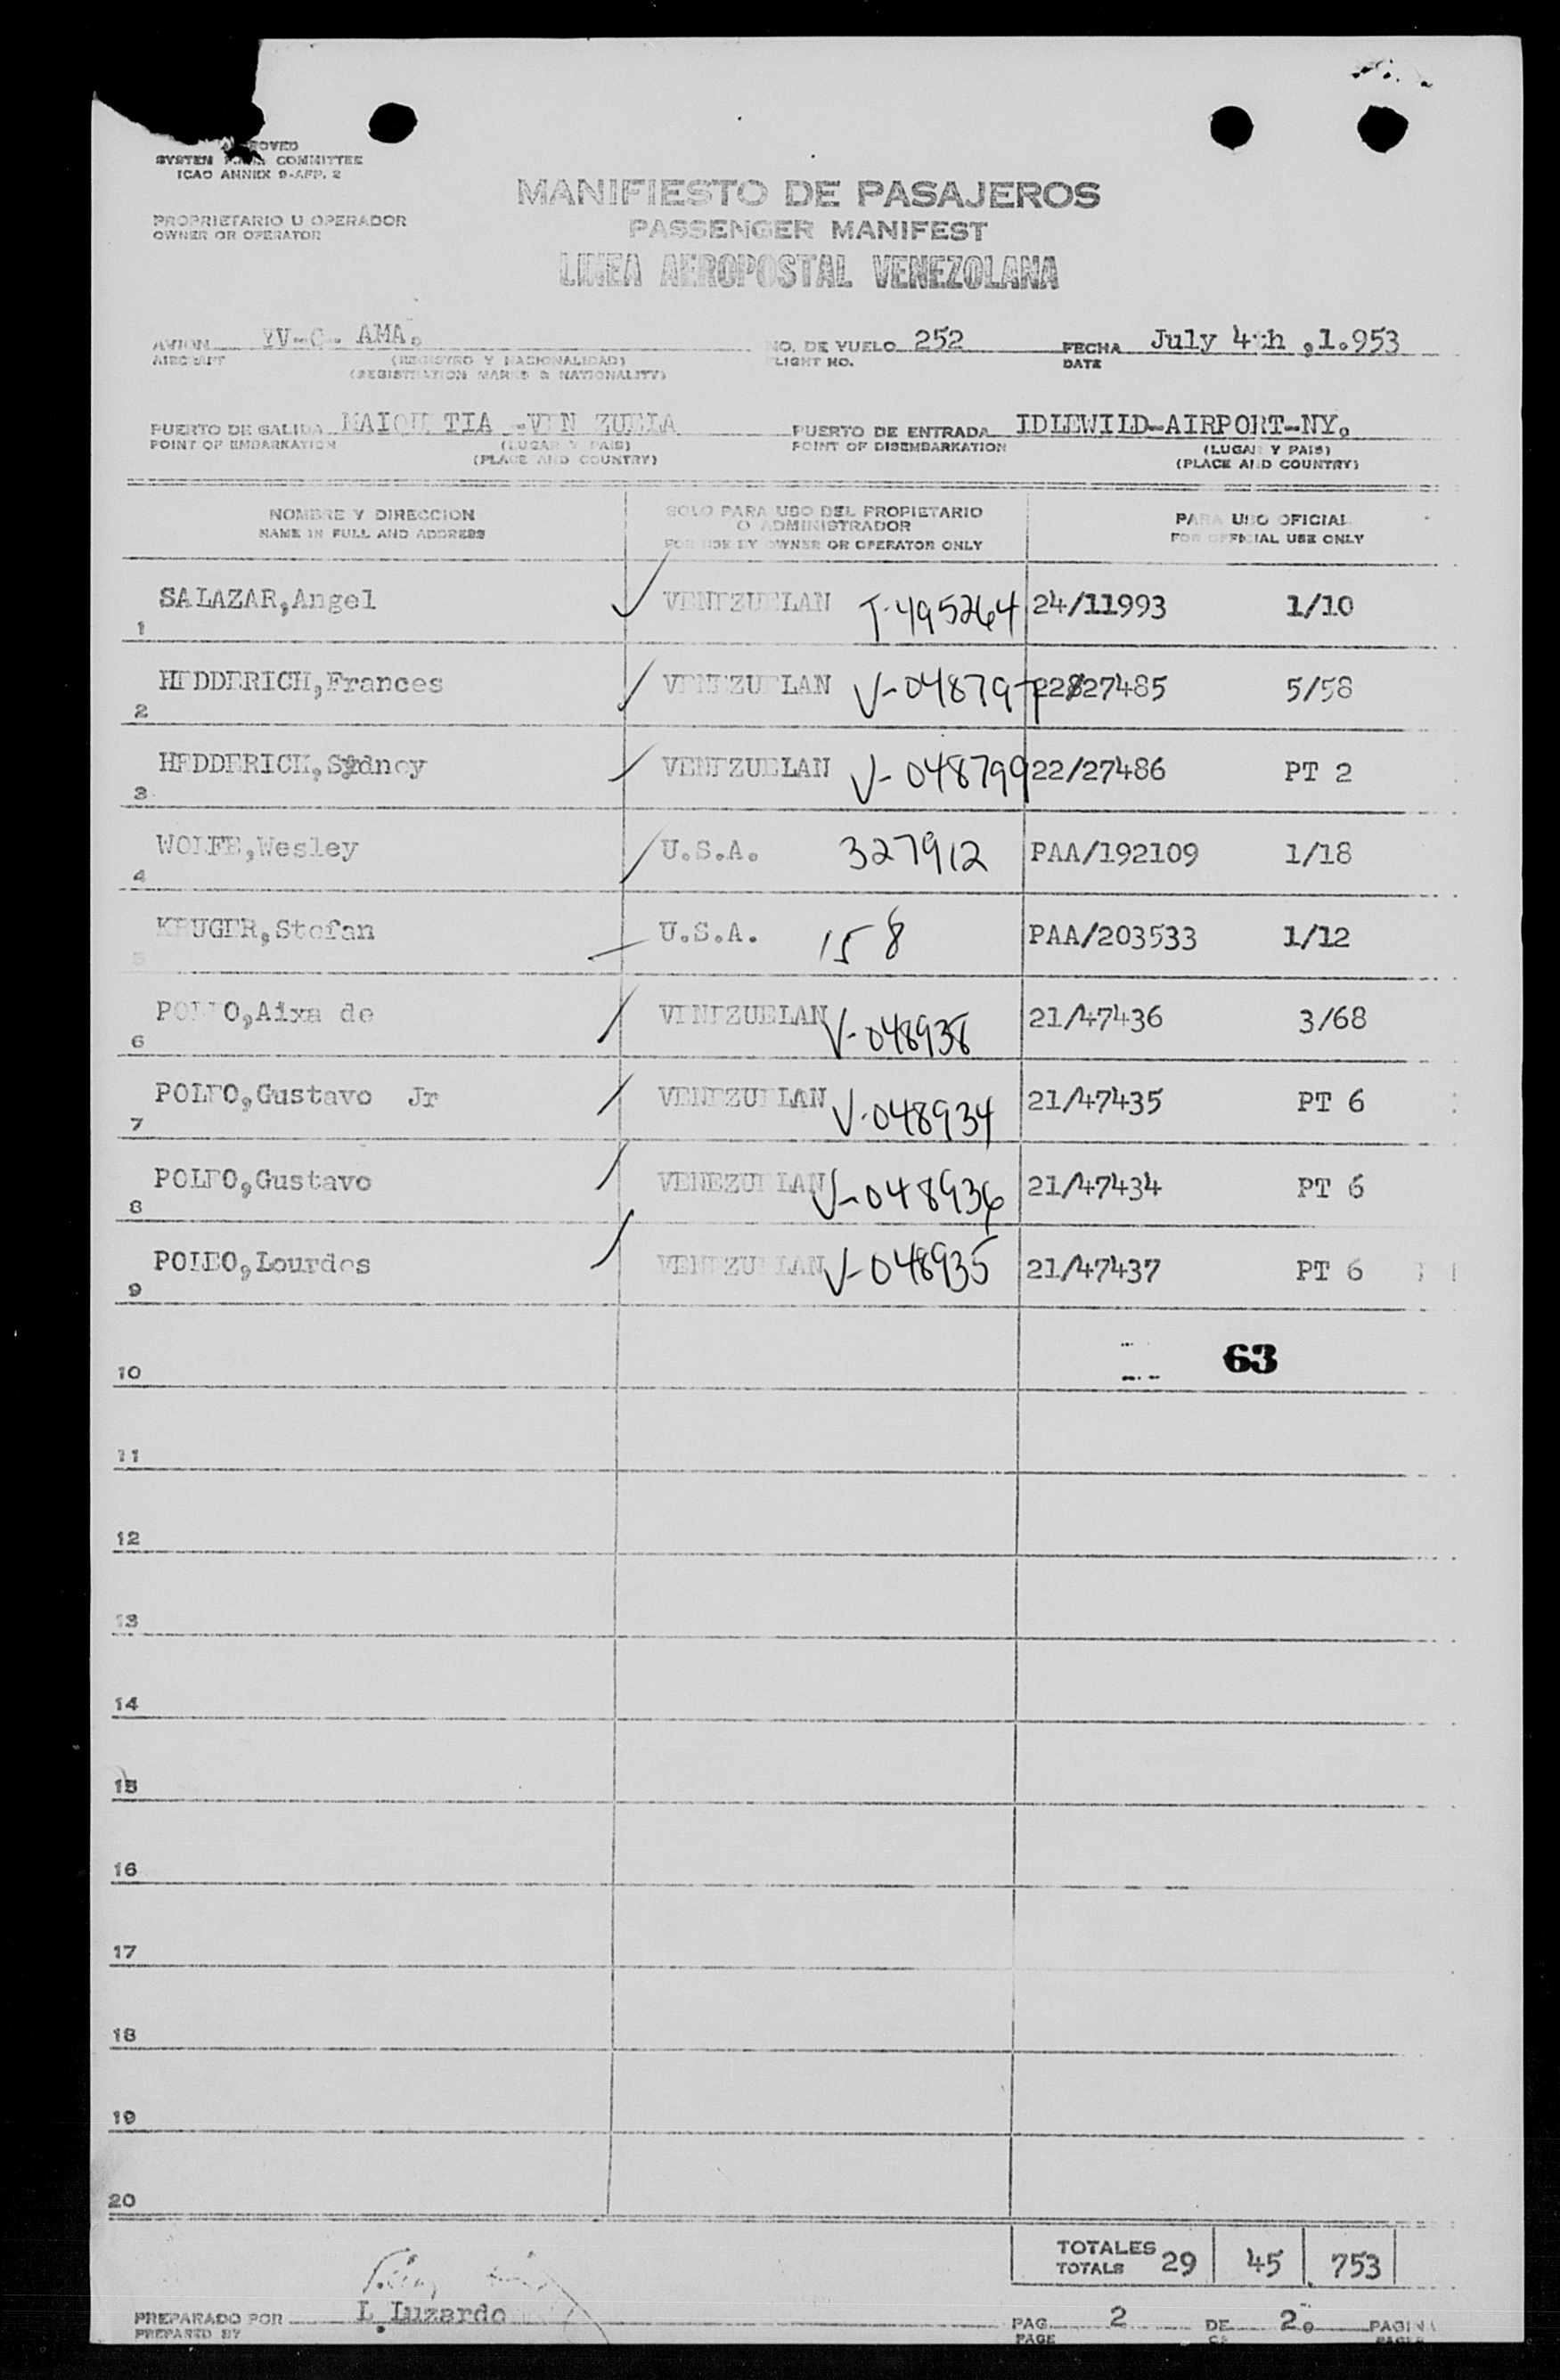 APPROVED
SYSTEM COMMITTEE
ICAO ANNEX 9-APP. 2
MANIFIESTO DE PASAJEROS
PROPRIETARIO U OPERADOR
OWNER OR OPERATOR
PASSENGER MANIFEST
LINEA AEROPOSTAL VENEZOLANA
AVION YV-C- AMA. NO. DE VUELO 252 FECHA July 4th ,1.953
AIRCRAFT (REGISTRO Y NACIONALIDAD) FLIGHT NO. DATE
(REGISTRATION MARKS & NATIONALITY)
PUERTO DE SALIDA MAIQUETIA -VENEZUELA PUERTO DE ENTRADA IDLEWILD-AIRPORT-NY.
POINT OF EMBARKATION (LUGAR Y PAIS) POINT OF DISEMBARKATION (LUGAR Y PAIS)
(PLACE AND COUNTRY) (PLACE AND COUNTRY)
NOMBRE Y DIRECCION SOLO PARA USO DEL PROPIETARIO PARA USO OFICIAL
O ADMINISTRADOR
NAME IN FULL AND ADDRESS FOR USE BY OWNER OR OPERATOR ONLY FOR OFFICIAL USE ONLY
1 SALAZAR,Angel VENEZUELAN T-495264 24/11993 1/10
2 HEDDERICH,Frances VENEZUELAN V-048797 22/27485 5/58
3 HEDDERICH,Sydney VENEZUELAN V-048799 22/27486 PT 2
4 WOLFE,Wesley U.S.A. 327912 PAA/192109 1/18
5 KRUGER,Stefan U.S.A. 158 PAA/203533 1/12
6 POLEO,Aixa de VENEZUELAN V-048938 21/47436 3/68
7 POLEO,Gustavo Jr VENEZUELAN V-048934 21/47435 PT 6
8 POLEO,Gustavo VENEZUELAN V-048936 21/47434 PT 6
9 POLEO,Lourdes VENEZUELAN V-048935 21/47437 PT 6
10 63
11
12
13
14
15
16
17
18
19
20
TOTALES 29 45 753
TOTALS
PREPARADO POR L. Luzardo PAG. 2 DE 2. PAGINA
PREPARED BY PAGE OF PAGES